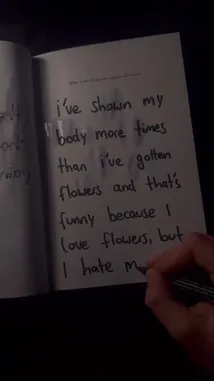 i've shown my
body more times
than i've gotten
flowers and that's
funny because I
love flowers, but
I hate m